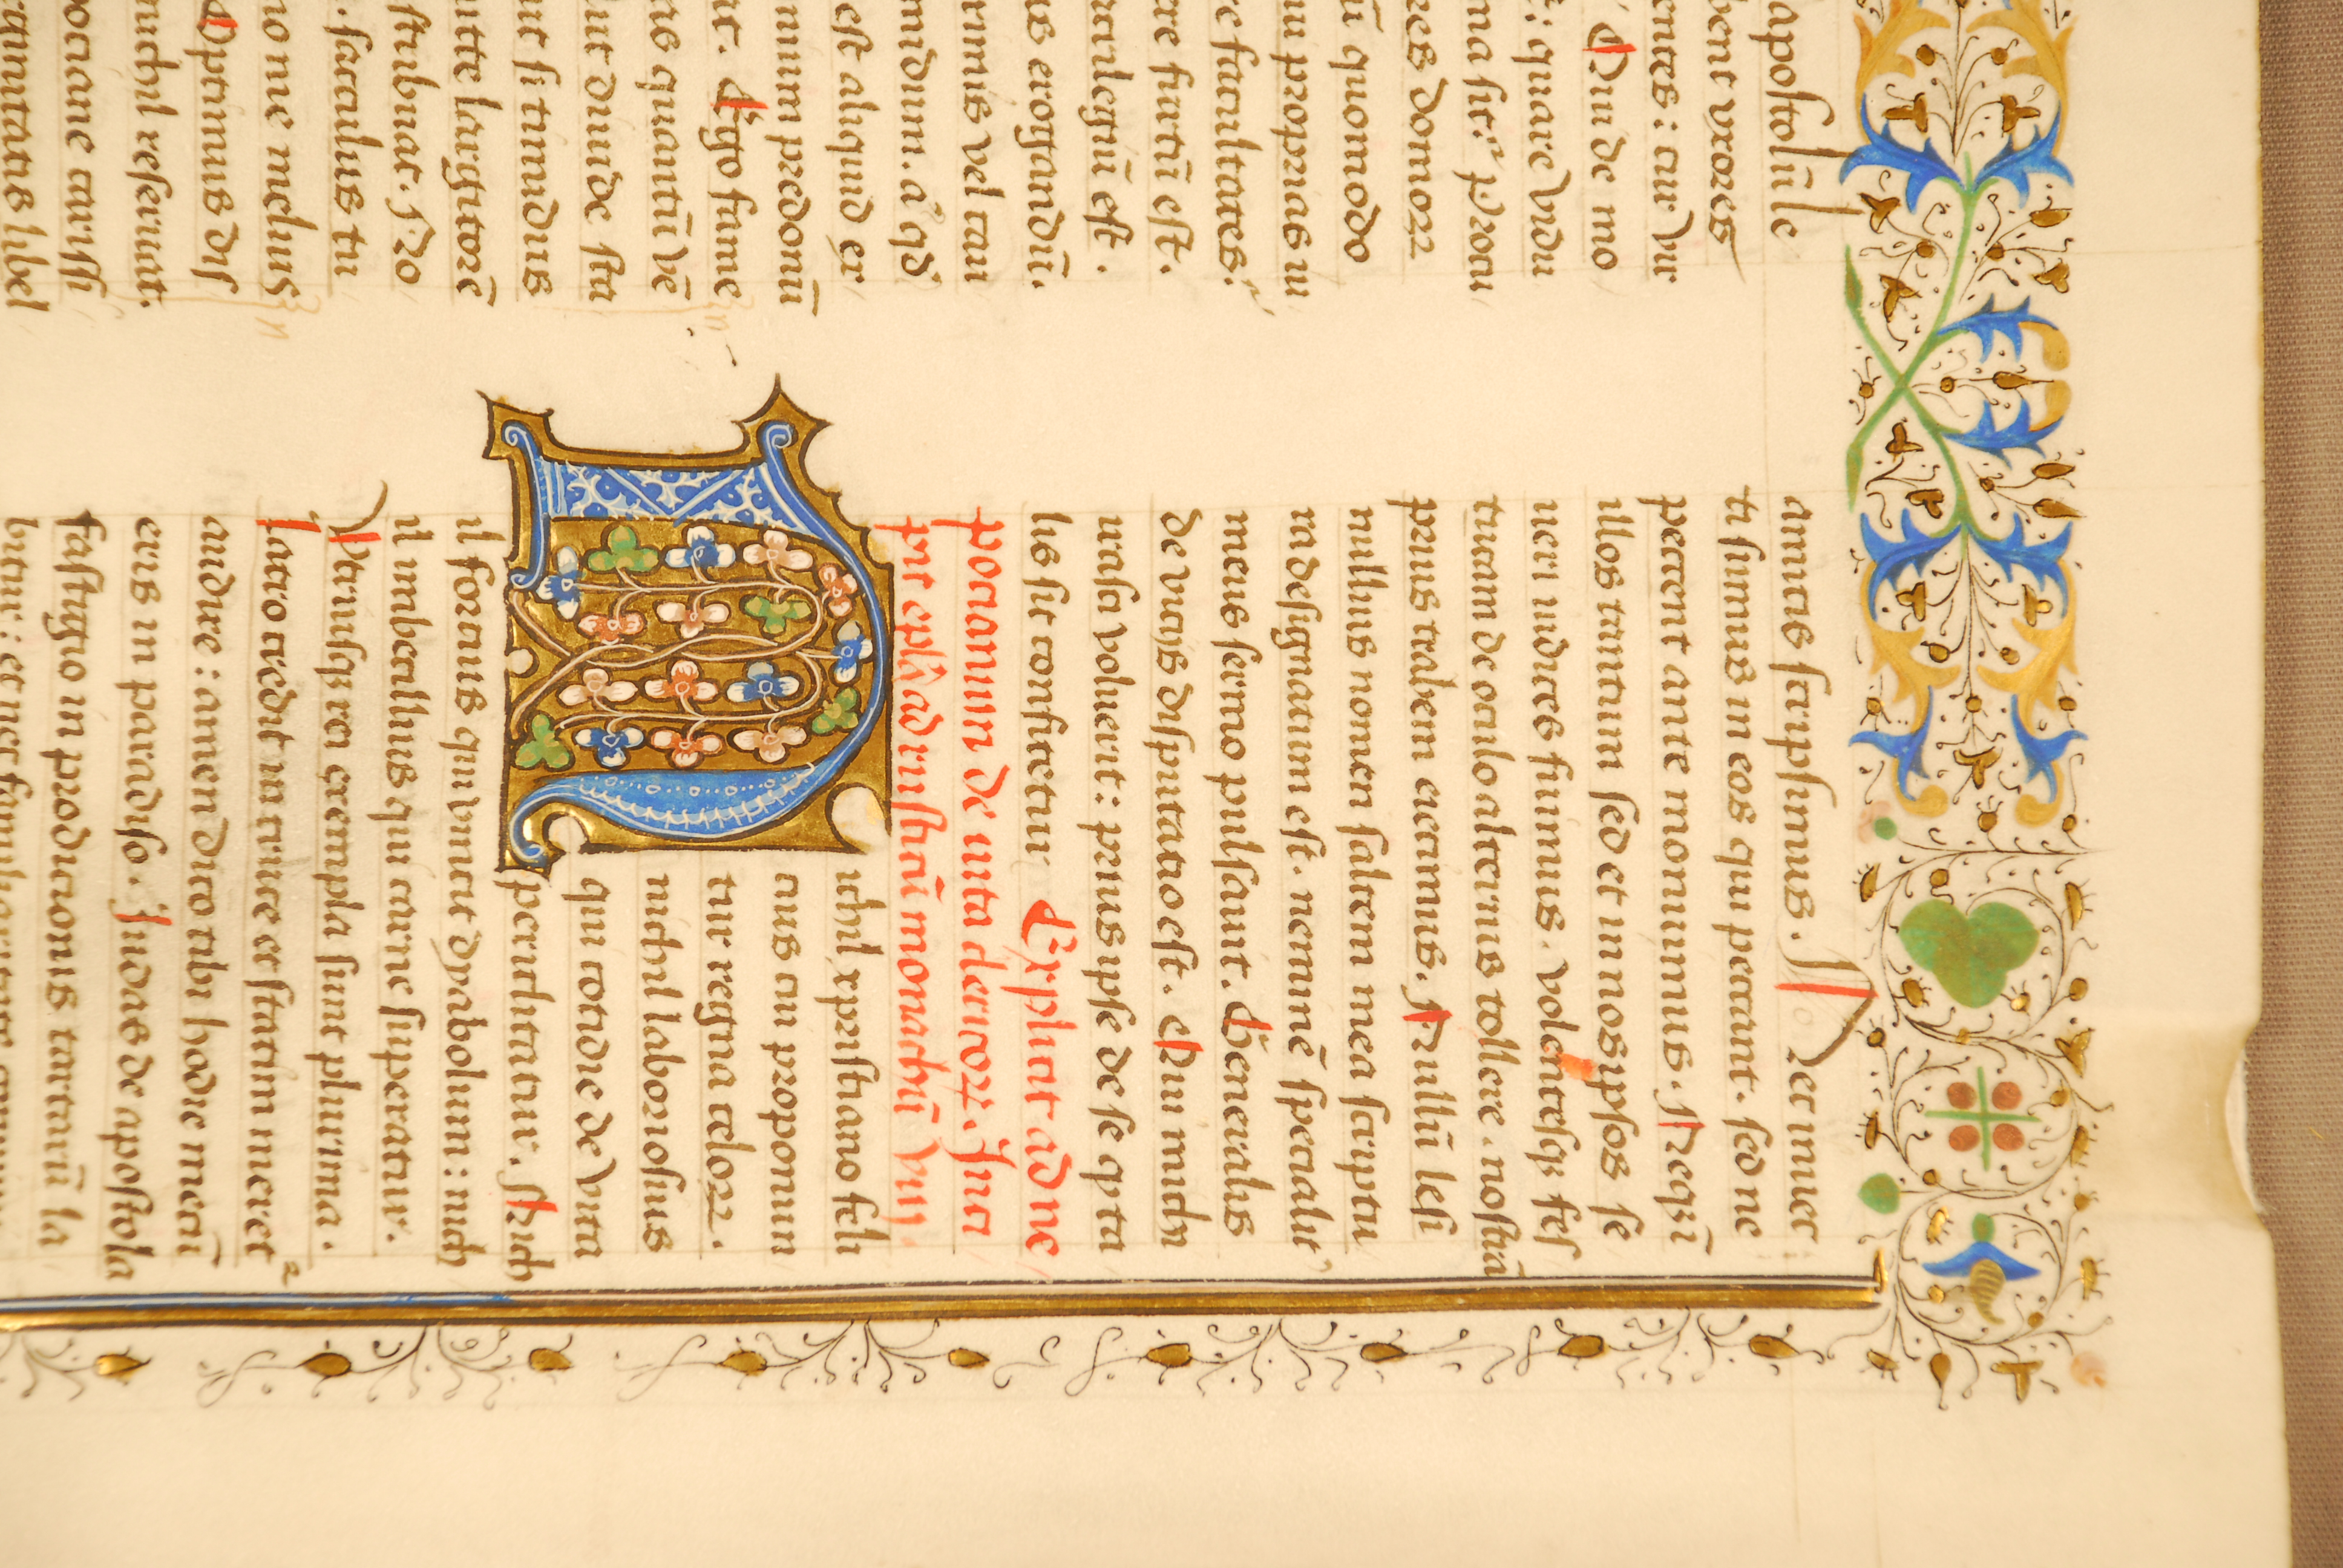 apostolū le
bent vxores
entes: cur vir
Qui de mo
: quare vidu
ma sit? Procu
res domoꝝ
ū quomodo
iu proprias in
e facultates.
re furtū est.
acrilegiū est.
us erogandū.
imus vel cau
midum. a qd
est aliquid ex
nium predonū
at. Ergo fame
as quantū vē
ut diuide sta
ut si timidus
itte largitorē
stribuat. No
. sacculus tu
no me melius
Optimus dis
nichil reseruat.
pociane carissi
mitans libel
amicis scripsimus. Nec inuec
ti sumus in eos qui peccant. sed ne
peccent ante monuimus. Neqū
illos tantum sed et in nosipsos se
ueri iudices fuimus. volentesqꝫ fes
tucam de oculo alterius tollere. nostrā
prius trabem eiecimus. Nullū lesi
nullius nomen saltem mea scriptu
ra designatum est. neminē specialit'
meus sermo pulsauit. Generalis
de vicijs disputacio est. Qui mich
irasci voluerit: prius ipse de se q ta
lis sit confitetur Explicit ad ne
pocianum de uita clericoꝝ. Inci
pit epl'a ad rusticū monachū viij
Nichil xpistiano feli
cius cui promittun
tur regna celoꝝ.
nichil laboriosius
qui cotidie de vita
periclitatur. Nich
il forcius qui vincit dyabolum: nich
il imbecillius qui carne superatur.
Vtriusqꝫ rei exempla sunt plurima.
Latro credit in cruce et statim meret
audire: amen dico tibi hodie mecū
eris in paradiso. Iudas de apostola
fastigio in prodicionis tartarū la
bitur: et nec